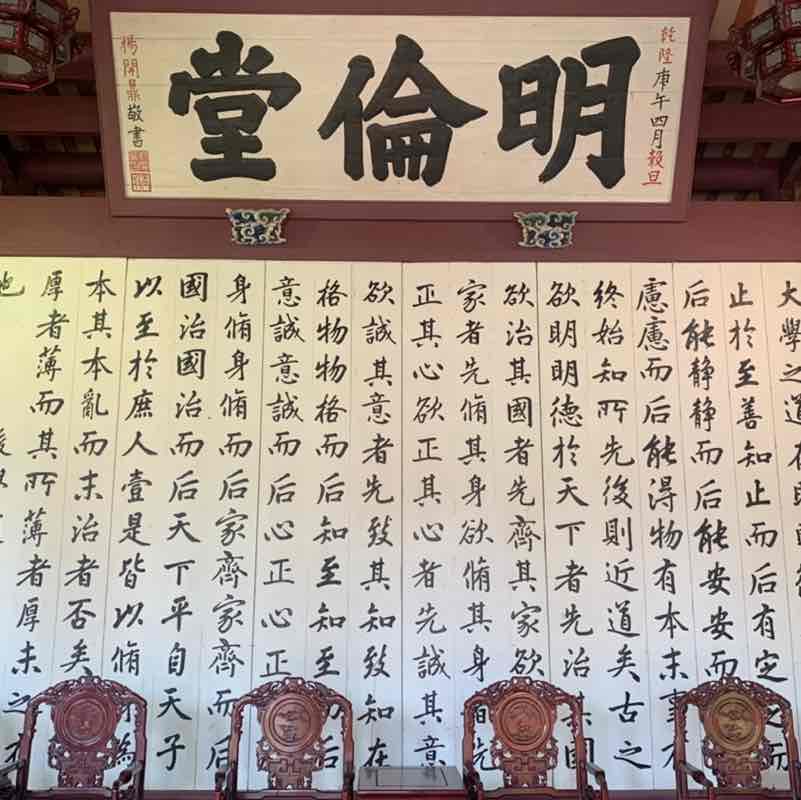 乾隆庚午四月穀旦
明倫堂
楊開鼎敬書
大學之道在
止於至善知止而后有定定而
后能静静而后能安安而
慮慮而后能得物有本末事
終始知所先後則近道矣古之
欲明明德於天下者先治其國
欲治其國者先齊其家欲
家者先脩其身欲脩其身者先
正其心欲正其心者先誠其意
欲誠其意者先致其知致知在
格物物格而后知至知至而后
意誠意誠而后心正心正
身脩身脩而后家齊家齊而后
國治國治而后天下平自天子
以至於庶人壹是皆以脩身為
本其本亂而末治者否矣
厚者薄而其所薄者厚未之有
也